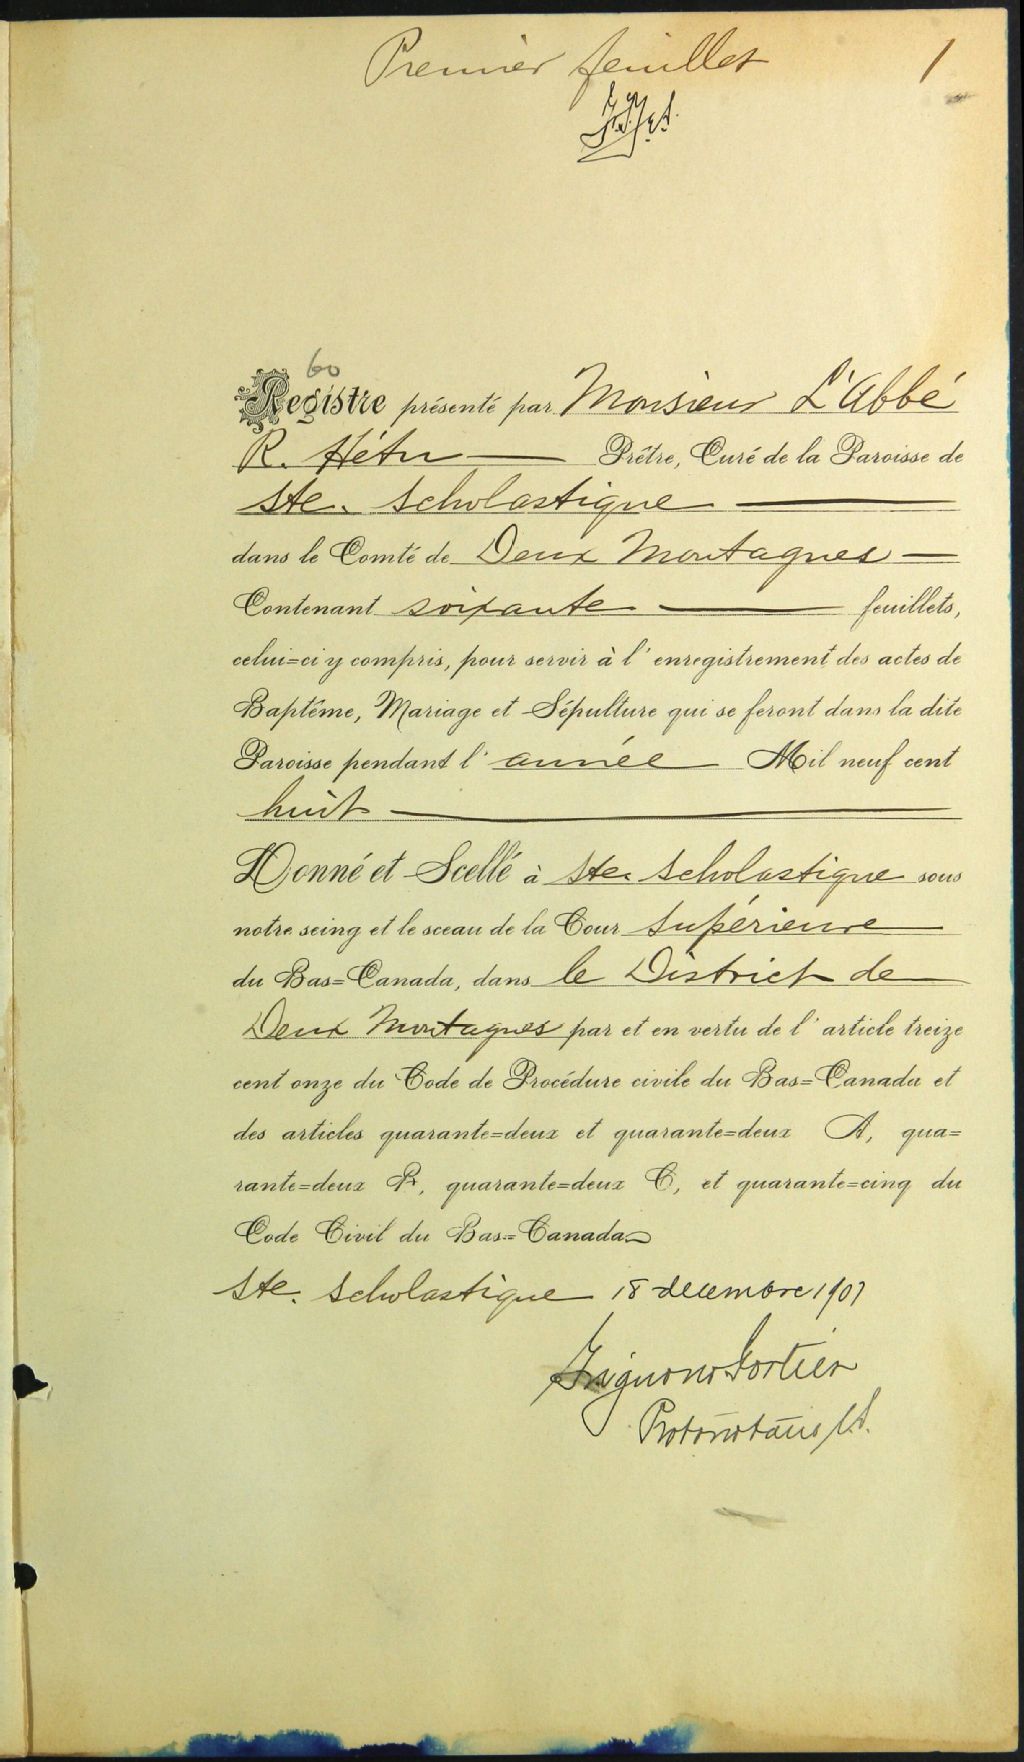 Premier feuillet 1
60
Registre présenté par Monsieur L'Abbé
R. Hétu Prêtre, Curé de la Paroisse de
Ste. Scholastique
dans le Comté de Deux Montagnes
Contenant soixante feuillets,
celui=ci y compris, pour servir à l'enregistrement des actes de
Baptême, Mariage et Sépulture qui se feront dans la dite
Paroisse pendant l'année Mil neuf cent
huit
Donné et Scellé à Ste. Scholastique sous
notre seing et le sceau de la Cour Supérieure
du Bas=Canada, dans le District de
Deux Montagnes par et en vertu de l'article treize
cent onze du Code de Procédure civile du Bas=Canada et
des articles quarante=deux et quarante=deux A, qua=
rante=deux B, quarante=deux C, et quarante=cinq du
Code Civil du Bas=Canada
Ste. Scholastique 18 decembre 1907
Grignon & Fortier
Protonotaire C.S.